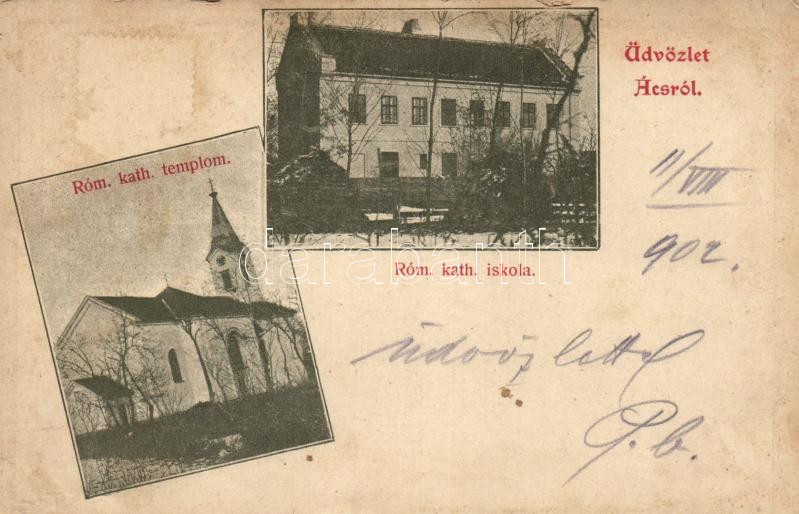 Üdvözlet
Ácsról.
Róm. kath. templom.
Róm. kath. iskola.
11/VIII
902.
Üdvözlettel
P. b.
darabanth